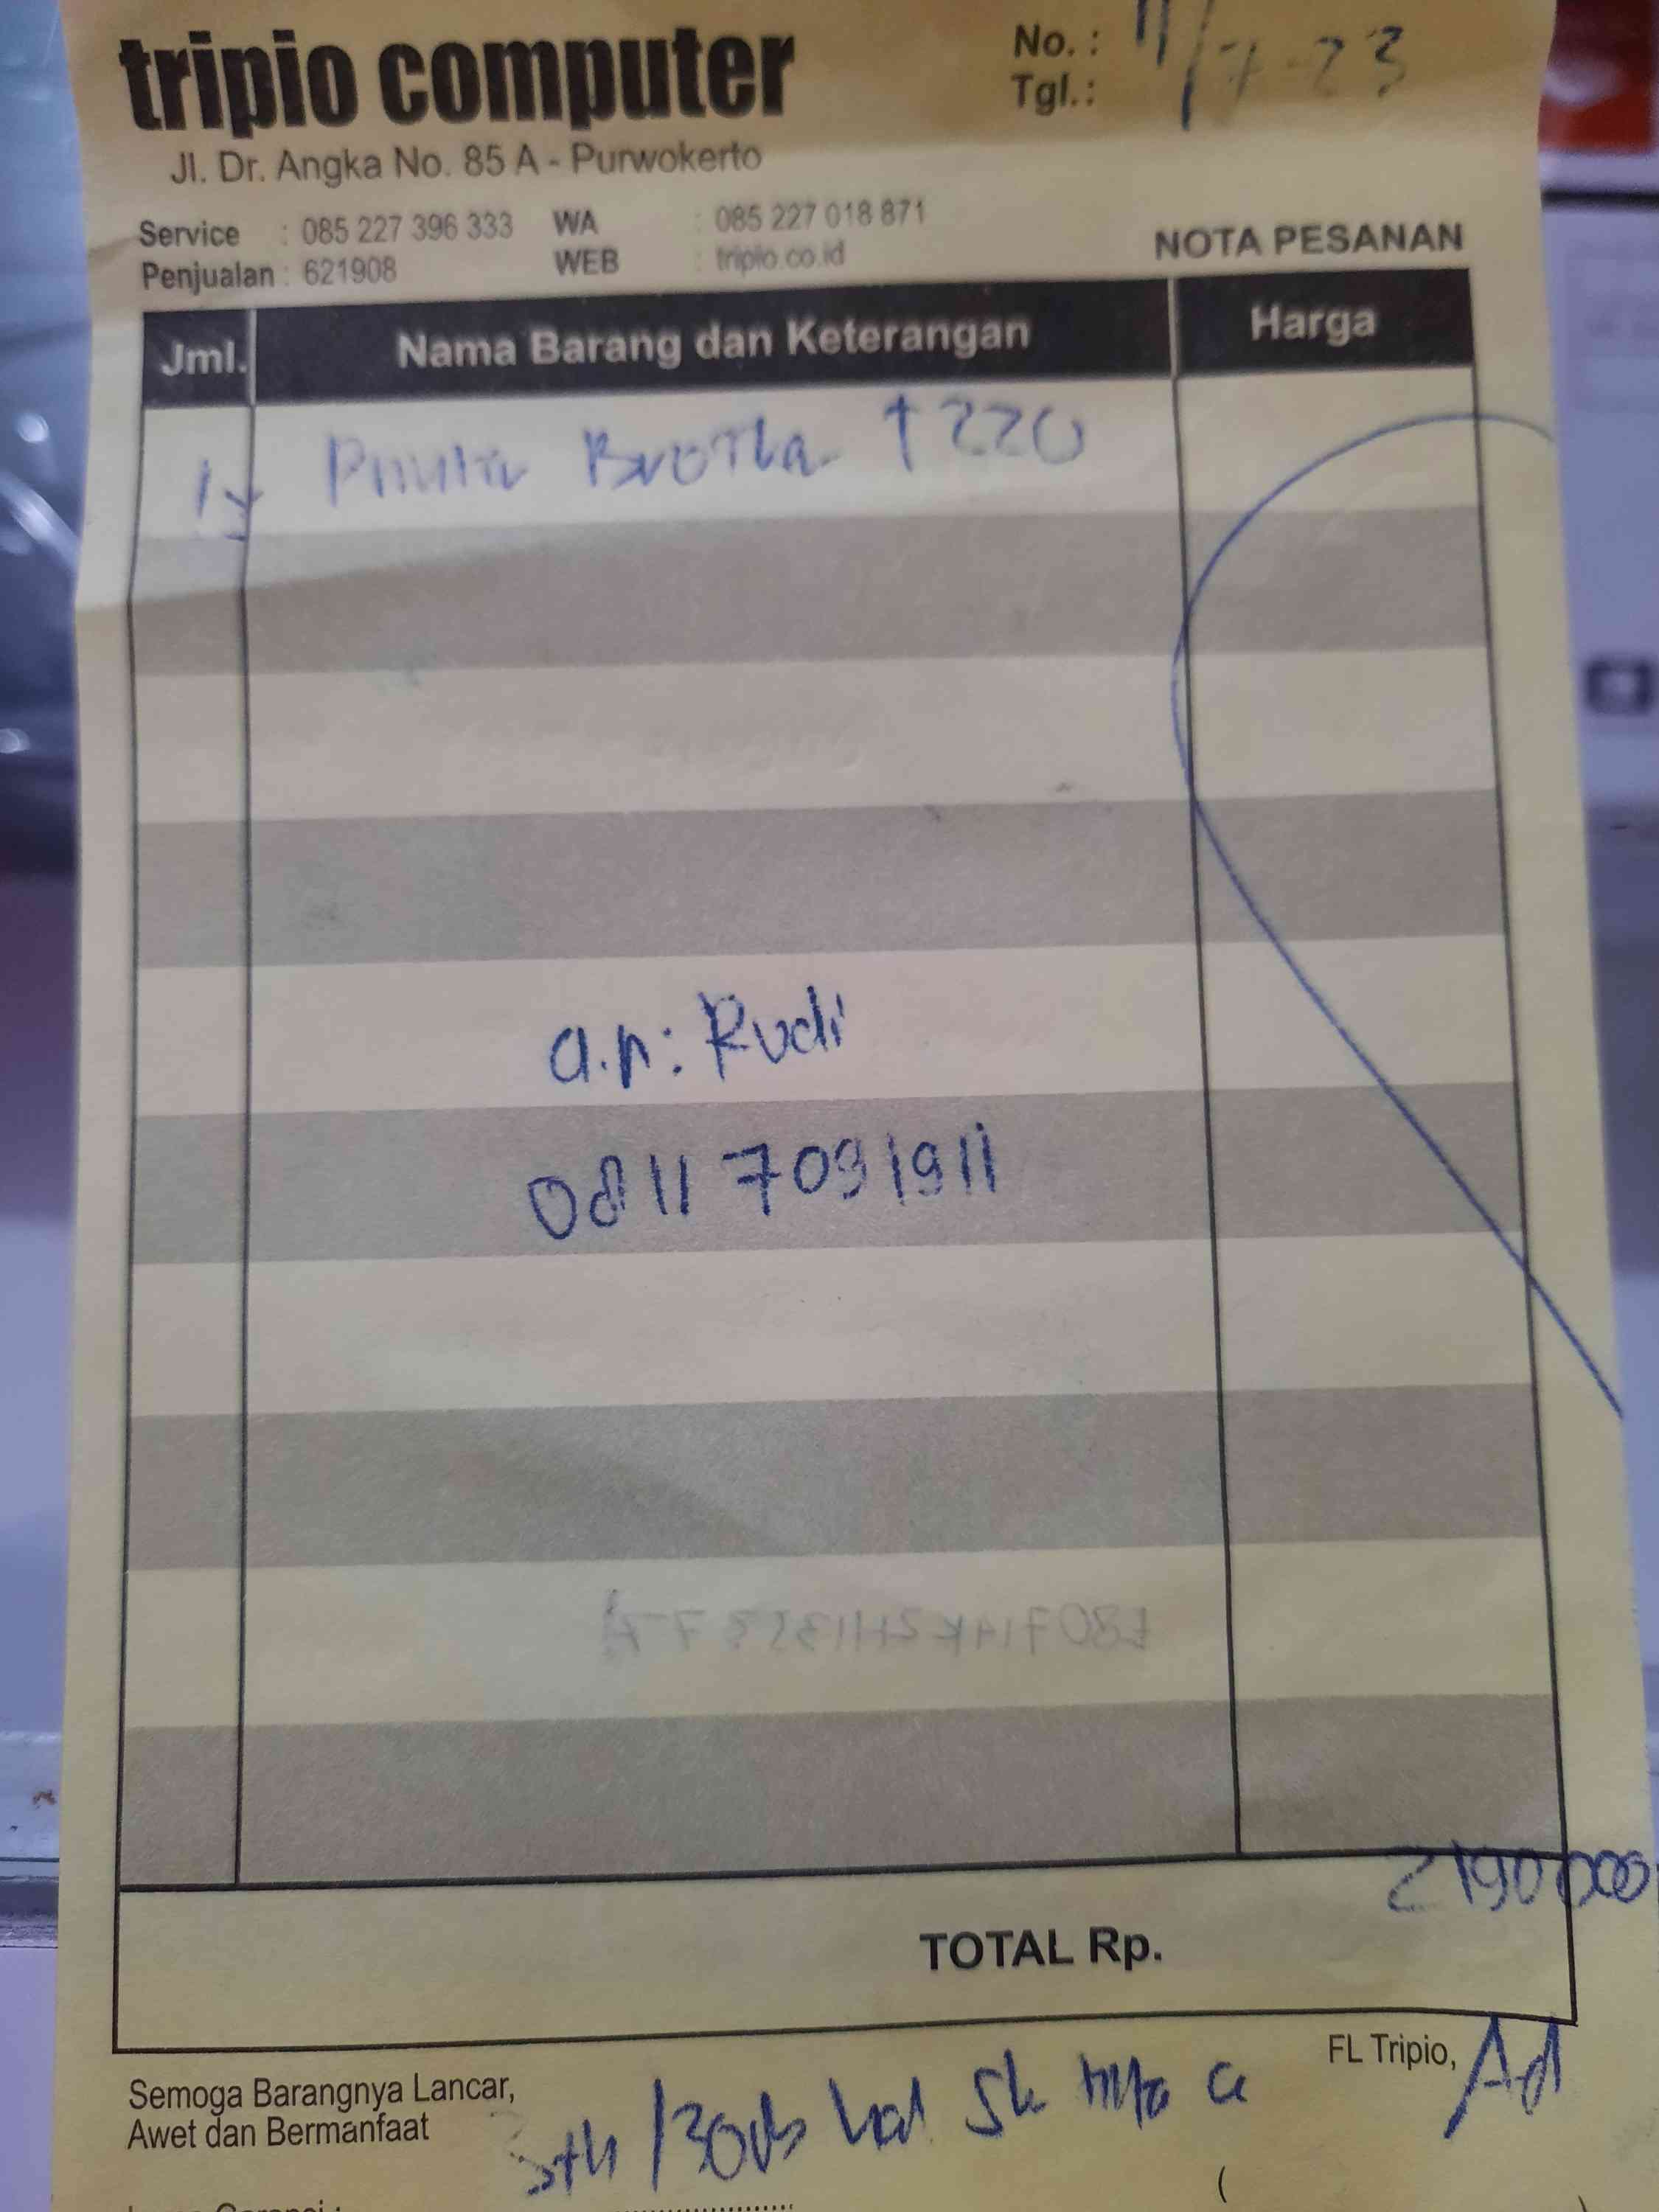 tripio computer
Jl. Dr. Angka No. 85 A - Purwokerto
No. :
Tgl.: 11/7-23
Service : 085 227 396 333 WA : 085 227 018 871
Penjualan : 621908 WEB : tripio.co.id
NOTA PESANAN
Jml. Nama Barang dan Keterangan Harga
1 Printer Brother T220
a.n: Rudi
0811 7091911
2190000
TOTAL Rp.
FL Tripio,
Semoga Barangnya Lancar,
Awet dan Bermanfaat
3th/30rb